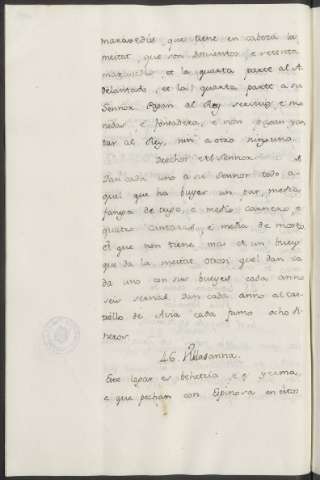 maravedis, que tiene en cabeza la
meitat, que son docientos e setenta
maravedis, et la quarta parte al A
delantado, et la quarta parte a su
Señor. Pagan al Rey servicios e mo
nedas, e fonsadera, e non pagan yan
tar al Rey, nin a otro ninguno.
Derechos del Señor
Dan cada uno a su Señor todo a
quel que ha bueyes un par, media
fanega de trigo, e medio carnero, e
quatro cantaras, e media de mosto,
el que non tiene mas de un buey
que da la meitat otrosi quel dan ca
da uno con sus bueyes cada anno
seis sernas. Dan cada anno al cas
tiello de Avia cada fumo ocho di
neros.
46. Villasanna.
Este logar es behetria, e es yerma,
e que pechan con Espinosa en estos